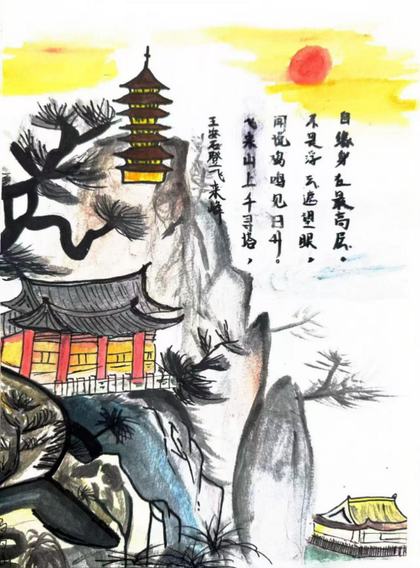 王安石登飞来峰
飞来山上千寻塔，
闻说鸡鸣见日升。
不是浮云遮望眼，
自缘身在最高层。